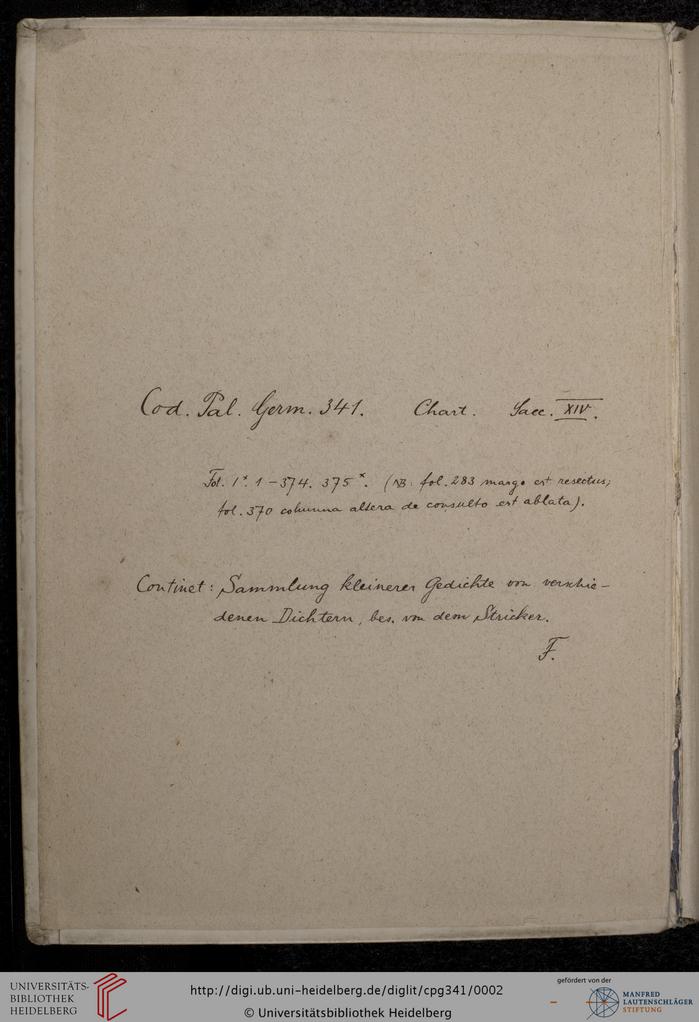 Cod. Pal. Germ. 341. Chart. Saec. XIV.
Fol. 1*. 1–374. 375*. (NB. fol. 283 margo est resectus;
fol. 370 columna altera de consulto est ablata).
Continet: Sammlung kleinerer Gedichte von verschie-
denen Dichtern, bes. von dem Stricker.
F.
UNIVERSITÄTS-
BIBLIOTHEK
HEIDELBERG
http://digi.ub.uni-heidelberg.de/diglit/cpg341/0002
© Universitätsbibliothek Heidelberg
gefördert von der
MANFRED
LAUTENSCHLÄGER
STIFTUNG